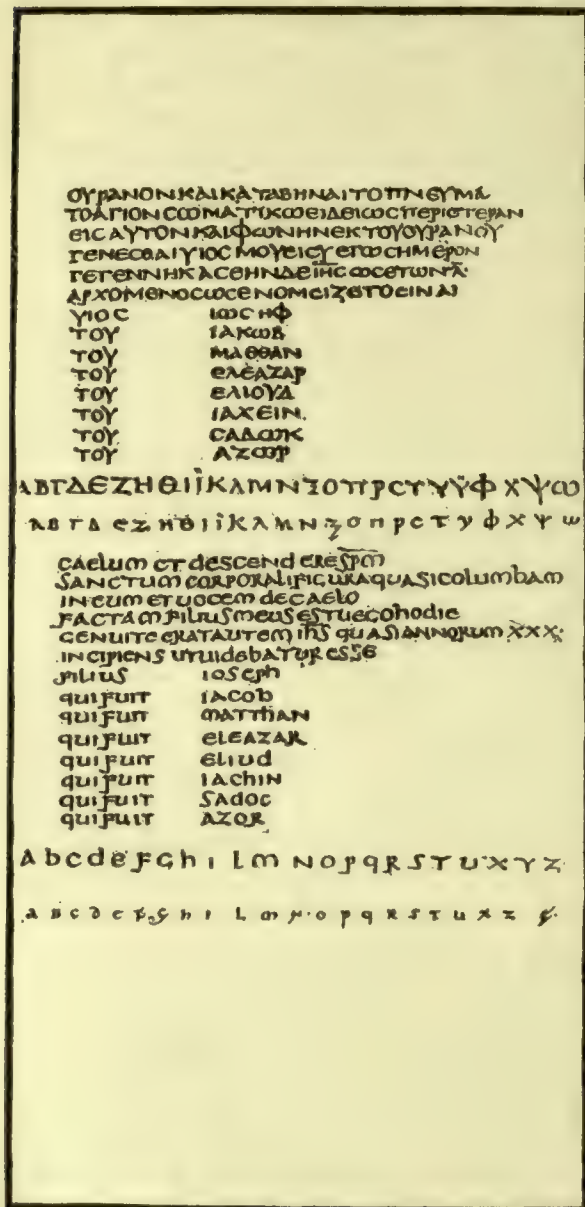 ΟΥΡΑΝΟΝΚΑΙΚΑΤΑΒΗΝΑΙΤΟΠΝΕΥΜΑ
ΤΟΑΓΙΟΝCΩΜΑΤΙΚΩΕΙΔΕΙΩCΠΕΡΙCΤΕΡΑΝ
ΕΙCΑΥΤΟΝΚΑΙΦΩΝΗΝΕΚΤΟΥΟΥΡΑΝΟΥ
ΓΕΝΕCΘΑΙΥΙΟCΜΟΥΕΙCΥΕΓΩCΗΜΕΡΟΝ
ΓΕΓΕΝΝΗΚΑCΕΗΝΔΕΙΗCΩCΕΤΩΝΛ̄·
ΑΡΧΟΜΕΝΟCΩCΕΝΟΜΕΙΖΕΤΟΕΙΝΑΙ
ΥΙΟC ΙΩCΗΦ
ΤΟΥ ΙΑΚΩΒ
ΤΟΥ ΜΑΘΘΑΝ
ΤΟΥ ΕΛΕΑΖΑΡ
ΤΟΥ ΕΛΙΟΥΔ
ΤΟΥ ΙΑΧΕΙΝ.
ΤΟΥ CΑΔΩΚ
ΤΟΥ ΑΖΩΡ
ΑΒΓΔΕΖΗΘΙΪΚΛΜΝΞΟΠΡCΤΥΫΦΧΨΩ
ΑΒΓΔΕΖΗΘΙΪΚΛΜΝΞΟΠΡCΤΥΦΧΨΩ
CAELUM ET DESCENDERESP̄M
SANCTUM CORPORALIFIGURAQUASICOLUMBAM
IN EUM ET UOCEM DECAELO
FACTAM FILIUSMEUSESTUEGOHODIE
GENUITE ERATAUTEM IH̄S QUASIANNORUM X̄X̄X̄·
INCIPIENS UTUIDEBATUR ESSE
FILIUS IOSEPH
QUIFUIT IACOB
QUIFUIT MATTHAN
QUIFUIT ELEAZAR
QUIFUIT ELIUD
QUIFUIT IACHIN
QUIFUIT SADOC
QUIFUIT AZOR
A b c d e F G h i L m N O P q R S T U X Y Z
a B c d e F G h i L m N O P q R S T U X Z